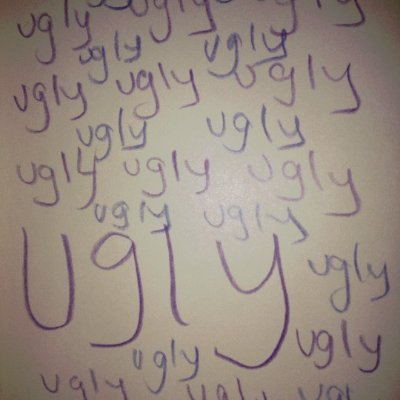 ugly ugly ugly
ugly ugly
ugly ugly ugly
ugly ugly
ugly ugly ugly
ugly ugly
ugly
ugly
ugly ugly
ugly ugly ugly